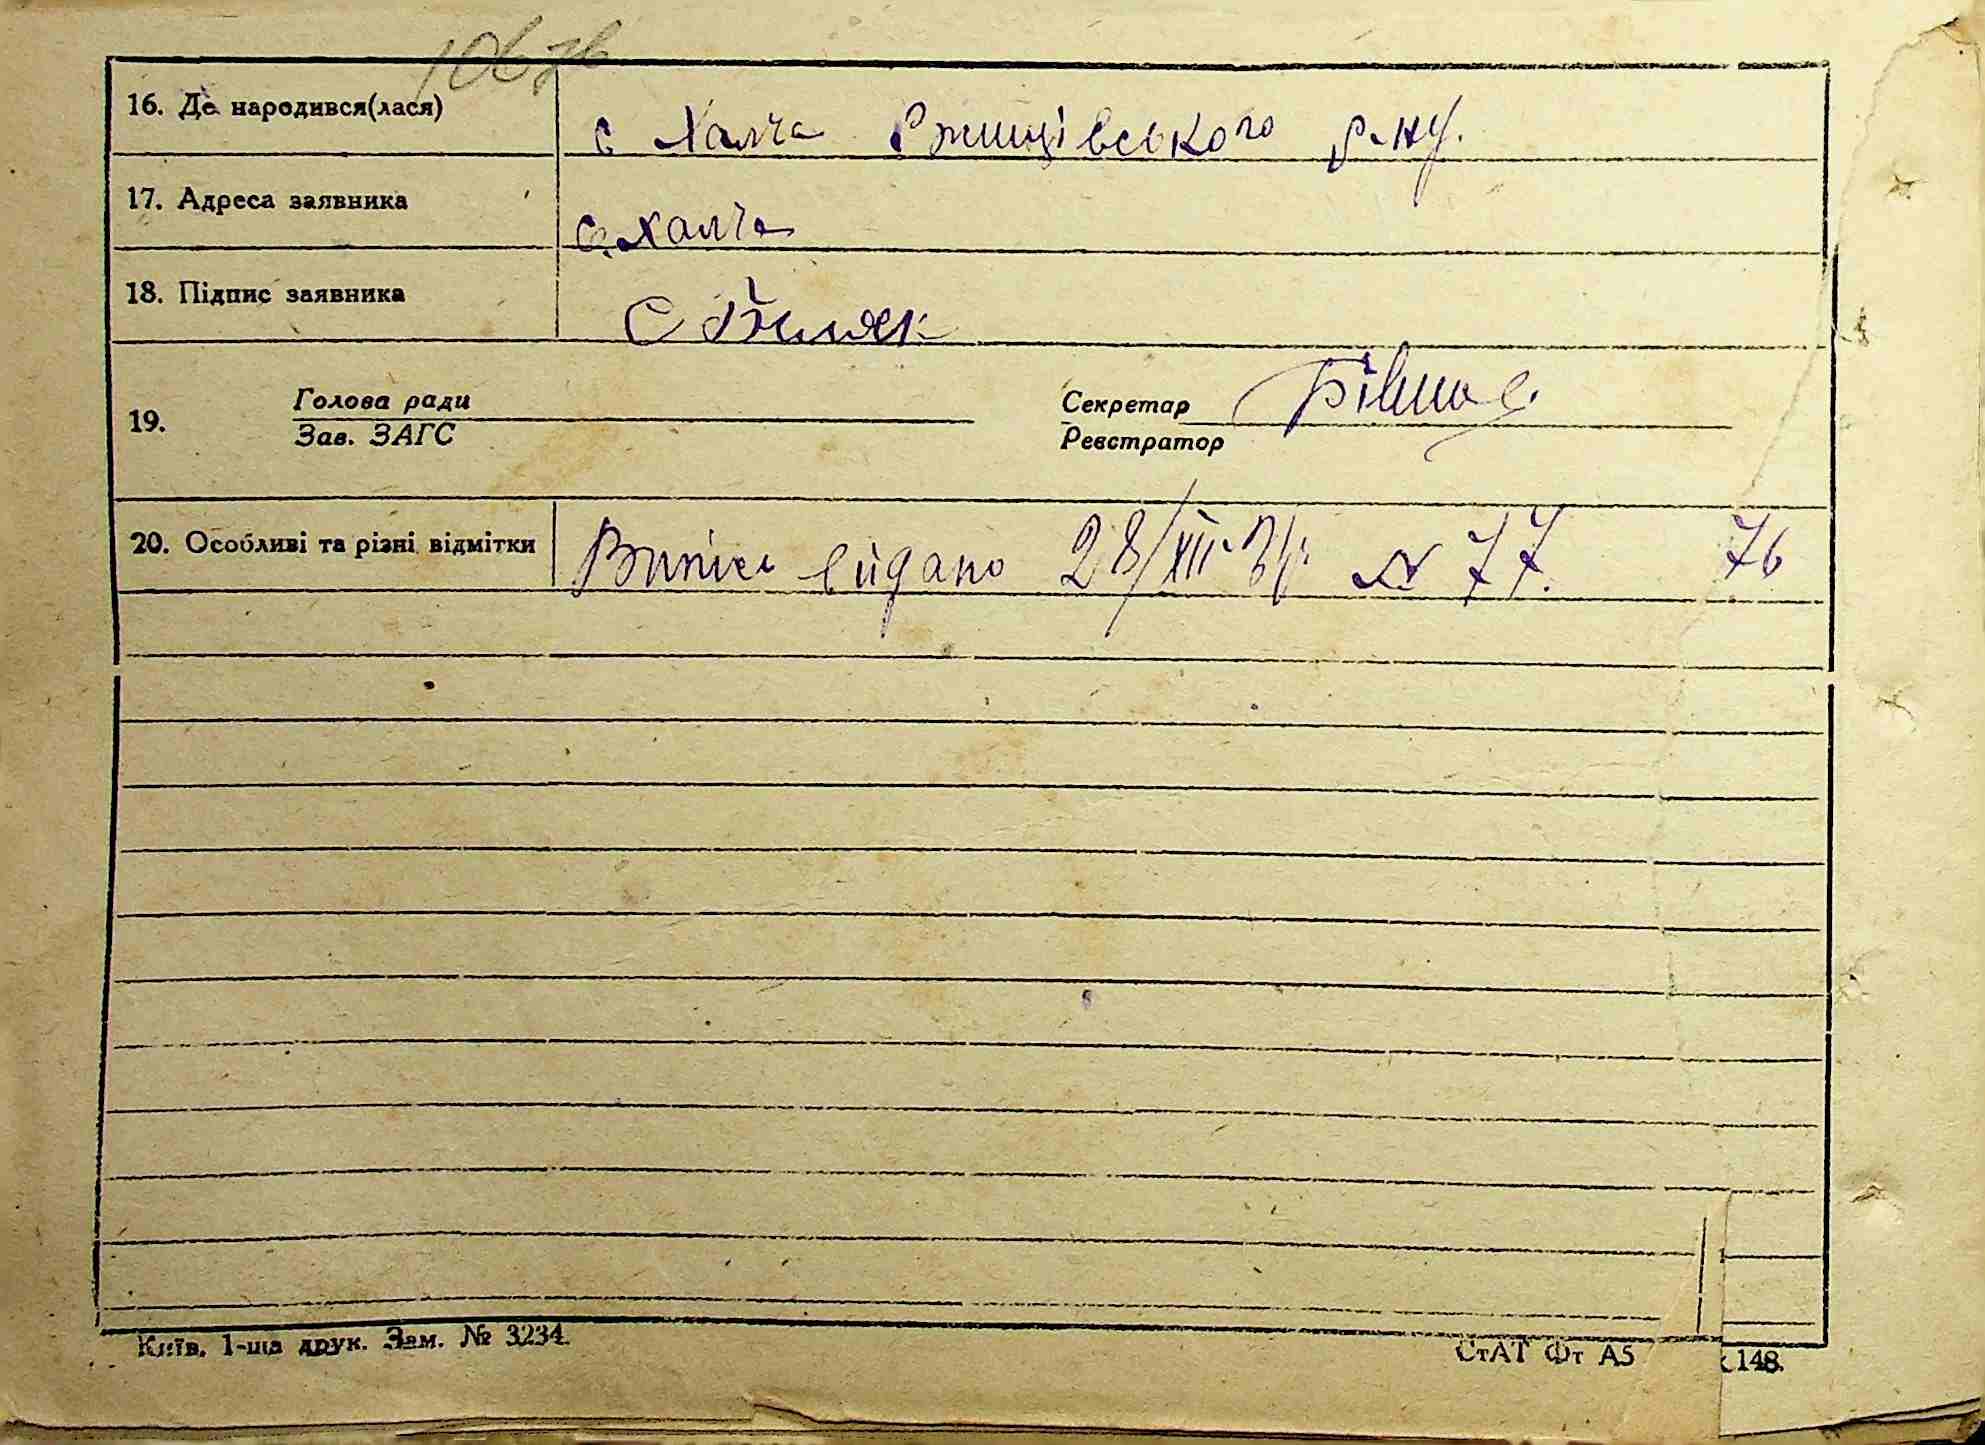 106 76
16. Де народився(лася) с Халча Ржищівського р-ну.
17. Адреса заявника с. Халча
18. Підпис заявника С
19. Голова ради Секретар
Зав. ЗАГС Реєстратор
20. Особливі та різні відмітки Випись видано 28/XII N 77. 76
Київ. 1-ша друк. Зам. № 3234.
СтАТ Фт А5 148.